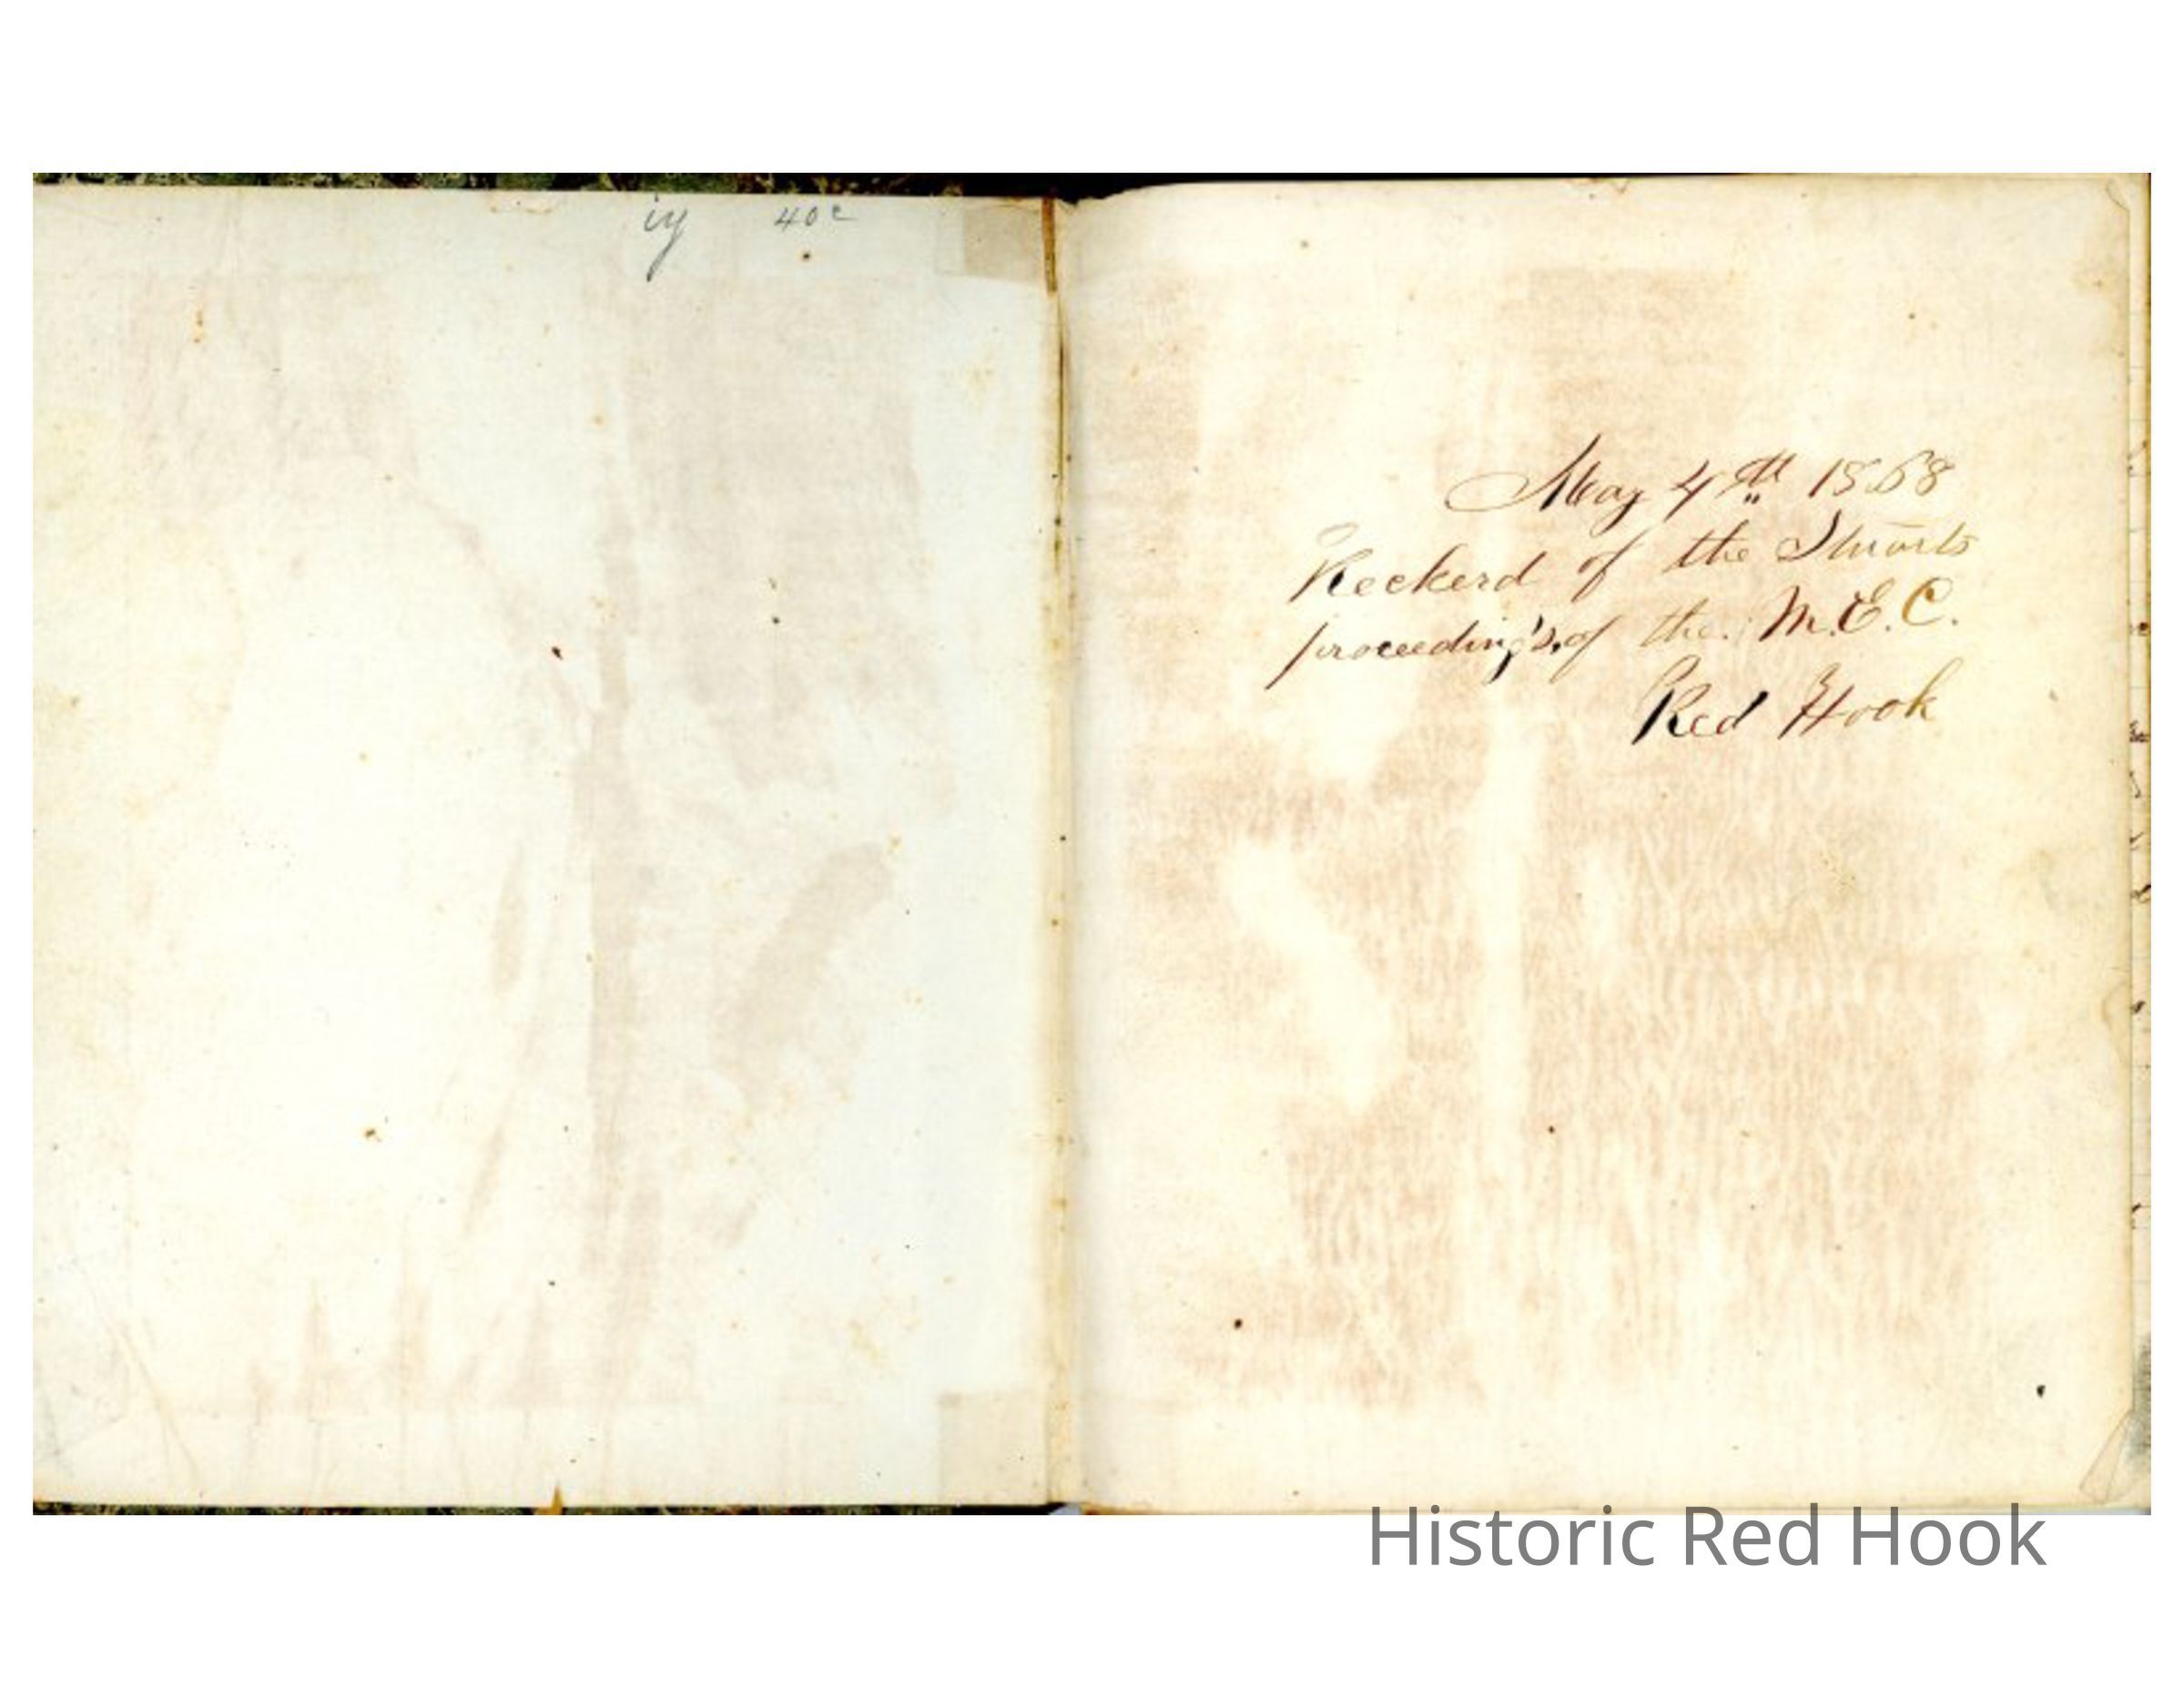 iy 40c
May 4th 1868
Reckerd of the Stuarts
proceeding's, of the. M.E.C.
Red Hook
Historic Red Hook